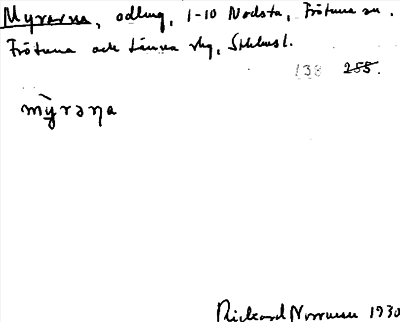 Myrarna, odling, 1-10 Nodsta, Frötuna sn.
Frötuna och Länna skg, Sthlms l.
138 255.
mỳrəṇa
Rickard Norrman 1930